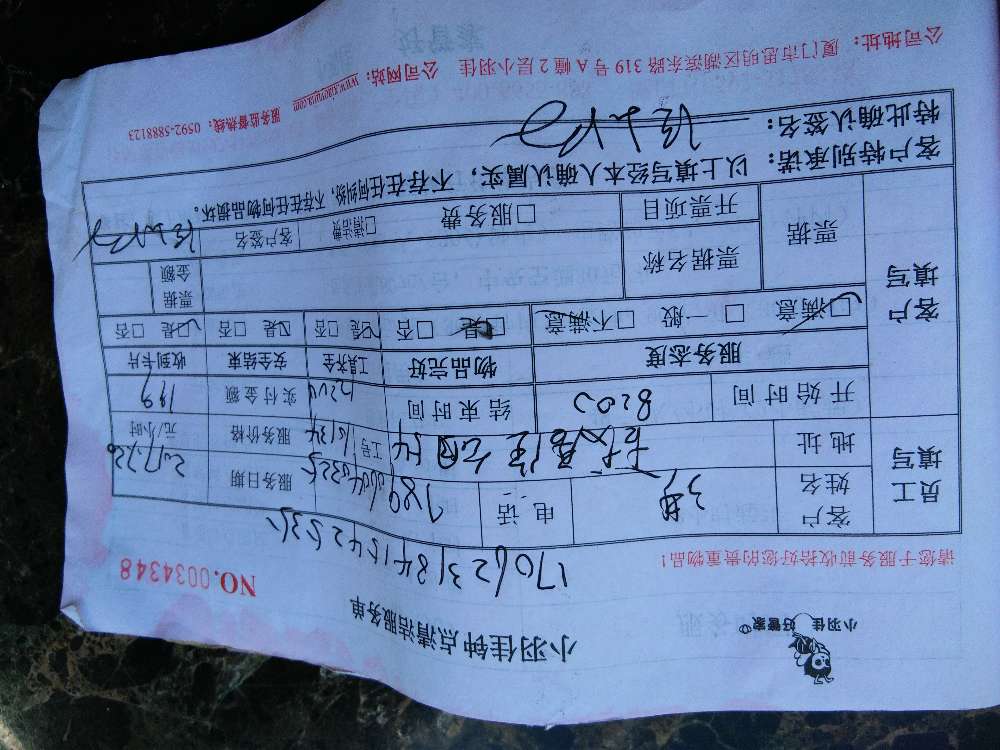 小羽佳 好管家
小羽佳钟点清洁服务单
NO.0034348
请您于服务前收拾好您的贵重物品！
员工填写
客户姓名
电话
服务日期
地址
工号
服务价格
元/小时
开始时间
8:00
结束时间
12:00
实付金额
199
客户填写
服务态度
物品完好
工具齐全
安全结束
收到卡片
☑满意 □一般 □不满意
☑是 □否
☑是 □否
☑是 □否
☑是 □否
票据
票据名称
票据金额
开票项目
□服务费 □清洁费
客户签名
客户特别承诺：以上填写经本人确认属实，不存在任何纠纷，不存在任何物品损坏。
特此确认签名：
服务监督热线：0592-5888123
公司地址：厦门市思明区湖滨东路319号A幢2层小羽佳 公司网站：www.xiaoyujia.com